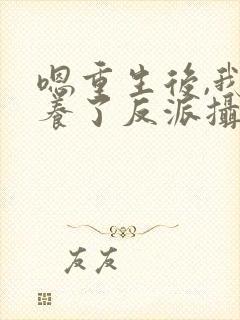 嗯重生後,我
養了反派攝
友友